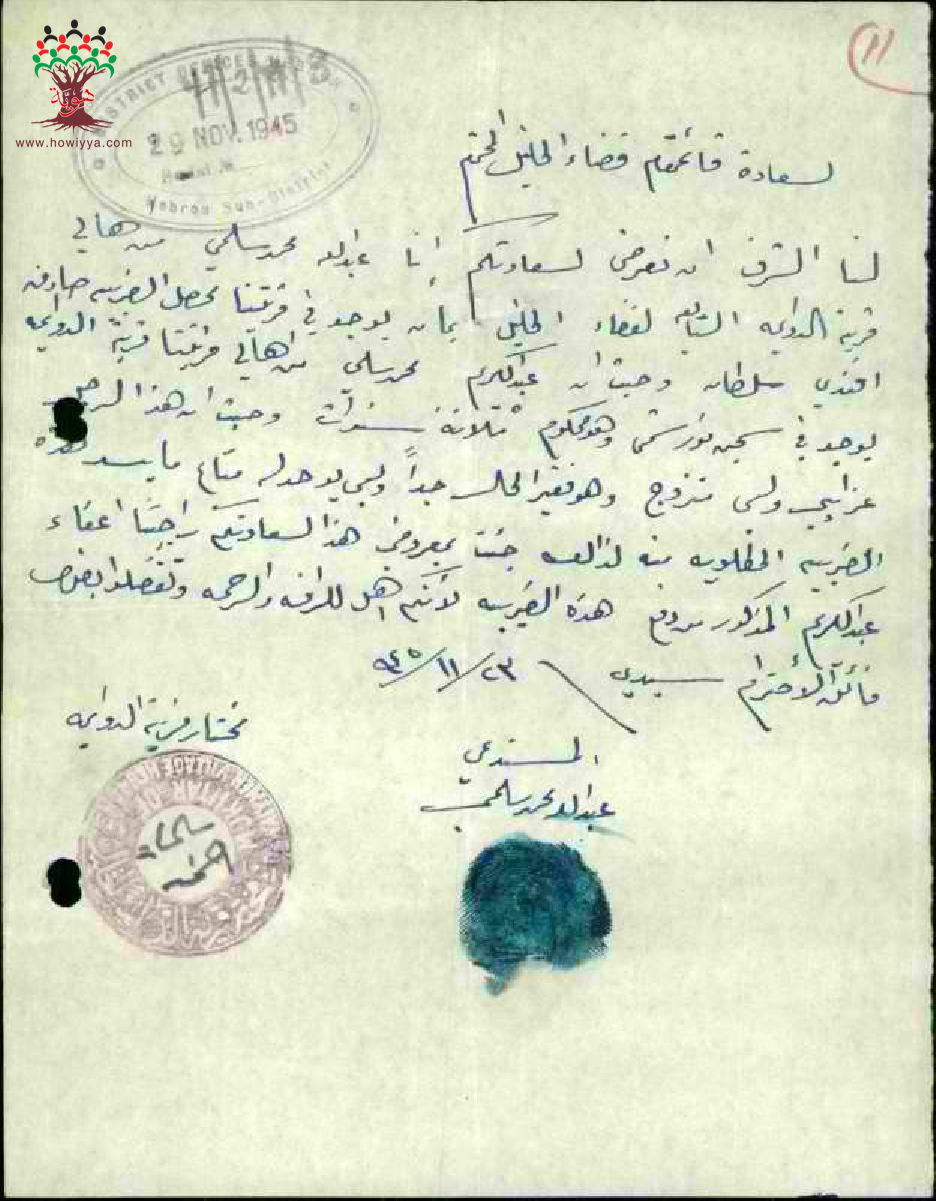 هوية
www.howiyya.com
DISTRICT OFFICE HEBRON
29 NOV. 1945
Hebron Sub-District
11
لسعادة قائمقام قضاء الخليل المحترم
لنا الشرف ان نعرض لسعادتكم إنا عبدالله محمد سلمي من هالي
قرية الدوايمه التابعه لقضاء الخليل بمان يوجد في قريتنا محصل الضريبه صادق
افندي سلطان وحيث ان عبدالكريم محمد سلمي من اهالي قريتنا قرية الدوايمه
يوجد في سجن نور شمس وهو محكوم ثلاثة سنوات وحيث ان هذا الرجل
عزابي وليس متزوج وهو فقير الحال جداً وليس يوجد له متاع ما يسد هذه
الضريبه المطلوبه منه لذالك جئت بمعروضي هذا لسعادتكم راجيا اعفاء
عبدالكريم المذكور من دفع هذه الضريبه لأنكم اهل للرافه والرحمه وتفضلوا بقبول
فائق الأحترام سيدي ٢٣/١١/٩٤٥
مختار قرية الدوايمه
المستدعي
عبدالله محمد سلمي